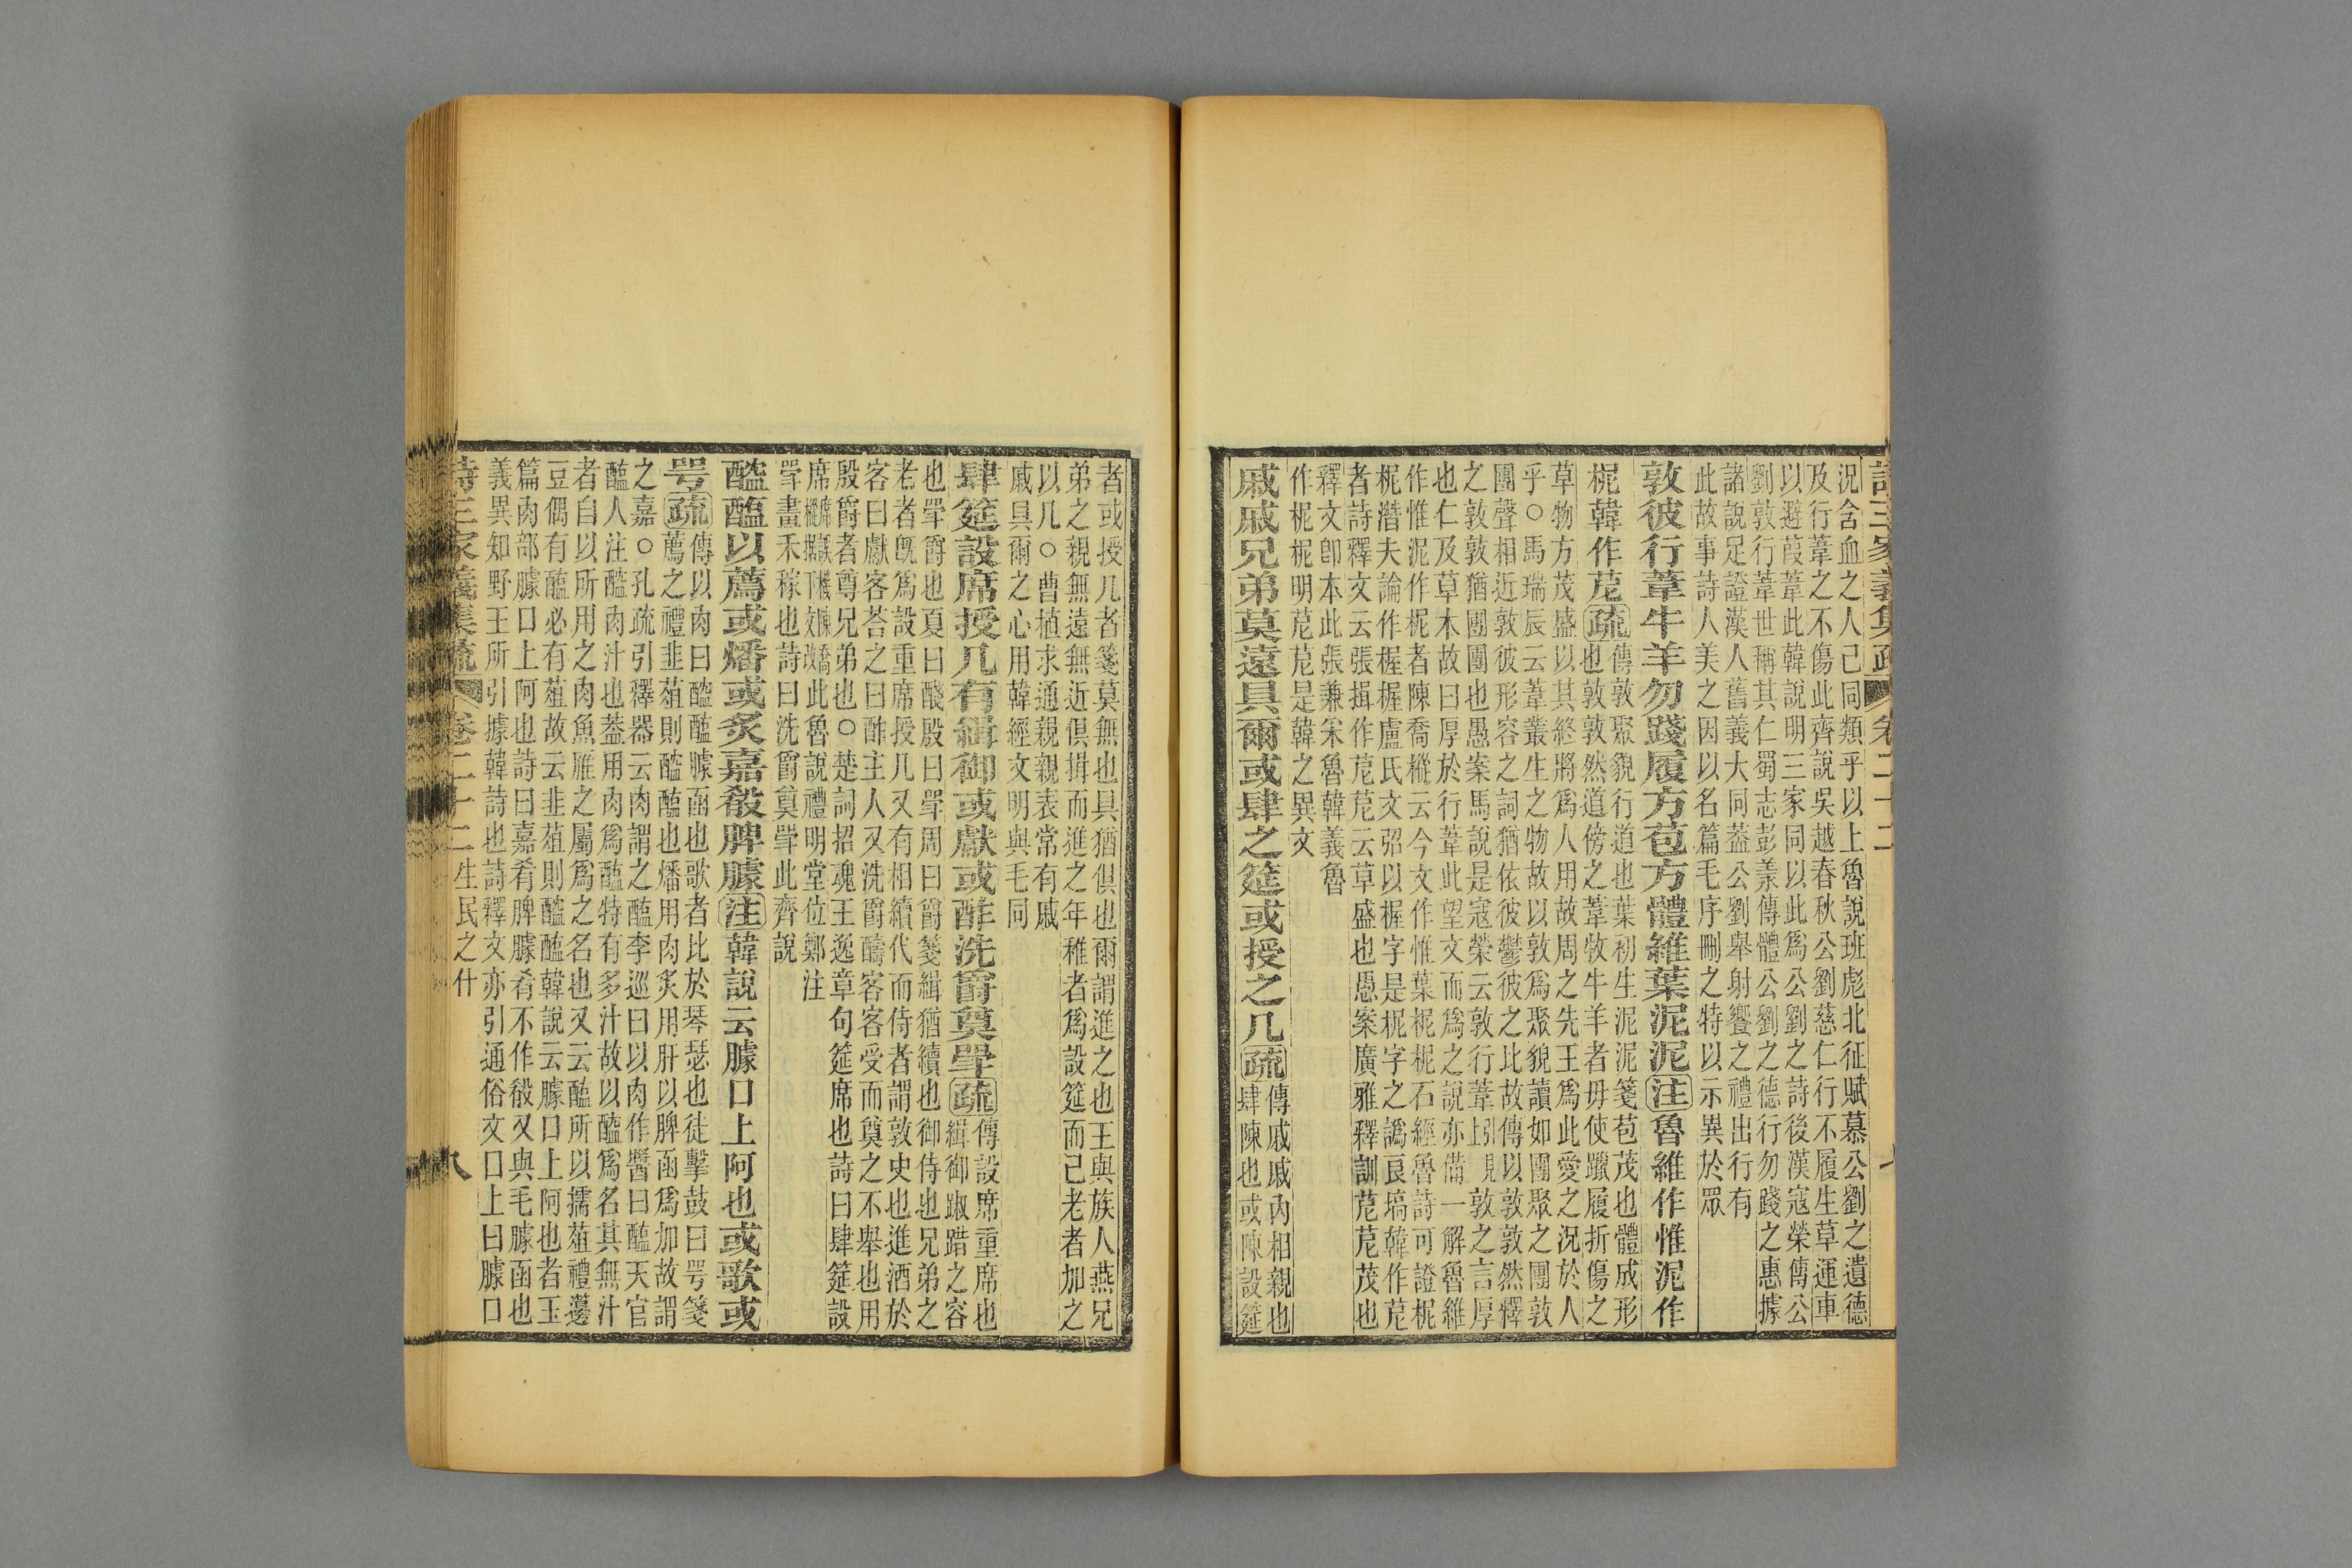 詩三家義集疏 卷二十二
況含血之人己同類乎以上魯說班彪北征賦慕公劉之遺德
及行葦之不傷此齊說吳越春秋公劉慈仁行不履生草運車
以避葭葦此韓說明三家同以此為公劉之詩後漢寇榮傳公
劉敦行葦世稱其仁蜀志彭羕傳體公劉之德行勿踐之惠據
諸說足證漢人舊義大同蓋公劉舉射饗之禮出行有
此故事詩人美之因以名篇毛序刪之特以示異於眾
敦彼行葦牛羊勿踐履方苞方體維葉泥泥注魯維作惟泥作
柅韓作苨疏
傳敦聚貌行道也葉初生泥泥箋苞茂也體成形
也敦敦然道傍之葦牧牛羊者毋使躐履折傷之
草物方茂盛以其終將為人用故周之先王為此愛之況於人
乎○馬瑞辰云葦叢生之物故以敦為聚貌讀如團聚之團敦
團聲相近敦彼形容之詞猶依彼鬱彼之比故傳以敦敦然釋
之敦敦猶團團也愚案馬說是寇榮云敦行葦敦之言厚
也仁及草木故曰厚於行葦此望文而為之說亦備一解魯維
作惟泥作柅者陳喬樅云今文作惟葉柅柅石經魯詩可證柅
柅潛夫論作握握盧氏文弨以握字是柅字之譌良塙韓作苨
者詩釋文云張揖作苨苨云草盛也愚案廣雅釋訓苨苨茂也
釋文卽本此張兼采魯韓義魯
作柅柅明苨苨是韓之異文
戚戚兄弟莫遠具爾或肆之筵或授之几疏
傳戚戚內相親也
肆陳也或陳設筵
者或授几者箋莫無也具猶俱也爾謂進之也王與族人燕兄
弟之親無遠無近俱揖而進之年稚者為設筵而已老者加之
以几○曹植求通親親表常有戚
戚具爾之心用韓經文明與毛同
肆筵設席授几有緝御或獻或酢洗爵奠斝疏
傳設席重席也
緝御踧踖之容
也斝爵也夏曰醆殷曰斝周曰爵箋緝猶續也御侍也兄弟之
老者旣為設重席授几又有相續代而侍者謂敦史也進酒於
客曰獻客荅之曰酢主人又洗爵醻客客受而奠之不舉也用
殷爵者尊兄弟也○楚詞招魂王逸章句筵席也詩曰肆筵設
此魯說禮明堂位鄭注
斝畫禾稼也詩曰洗爵奠斝此齊說
醓醢以薦或燔或炙嘉殽脾臄注韓說云臄口上阿也或歌或
咢疏
傳以肉曰醓醢臄函也歌者比於琴瑟也徒擊鼓曰咢箋
薦之禮韭菹則醓醢也燔用肉炙用肝以脾函為加故謂
之嘉○孔疏引釋器云肉謂之醢李巡曰以肉作醬曰醢天官
醢人注醓肉汁也蓋用肉為醢特有多汁故以醓為名其無汁
者自以所用之肉魚雁之屬為之名也又云醢所以擩菹禮籩
豆偶有醢必有菹故云韭菹則醓醢韓說云臄口上阿也者玉
篇肉部臄口上阿也詩曰嘉肴脾臄肴不作殽又與毛臄函也
義異知野王所引據韓詩也詩釋文亦引通俗文口上曰臄口
詩三家義集疏 卷二十二 生民之什 九